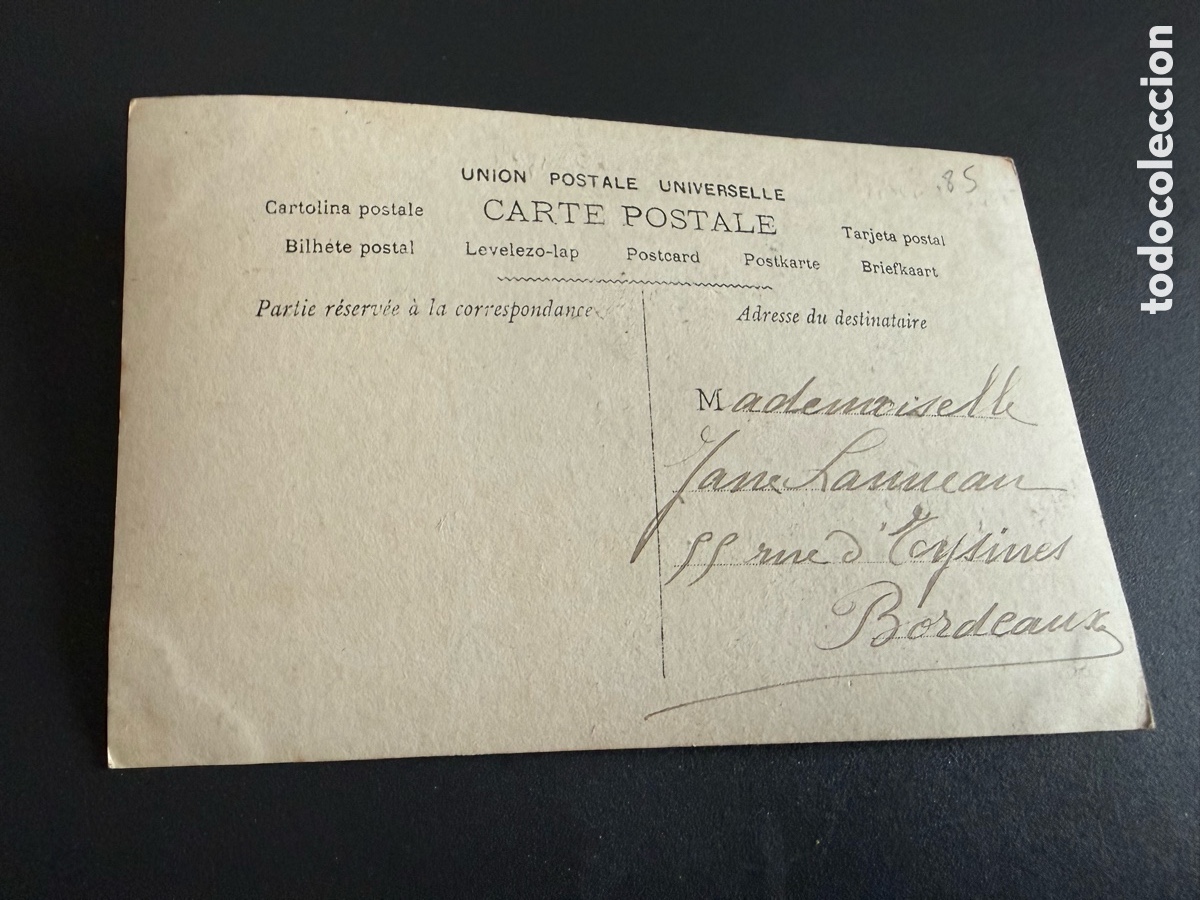 .85
UNION POSTALE UNIVERSELLE
CARTE POSTALE
Cartolina postale
Tarjeta postal
Bilhéte postal Levelezo-lap Postcard Postkarte Briefkaart
Partie réservée à la correspondance
Adresse du destinataire
Mademoiselle
Jane Lanneau
55 rue d'Eysines
Bordeaux
todocoleccion